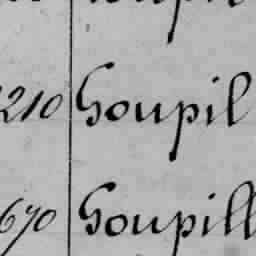 210 Goupil
670 Goupill